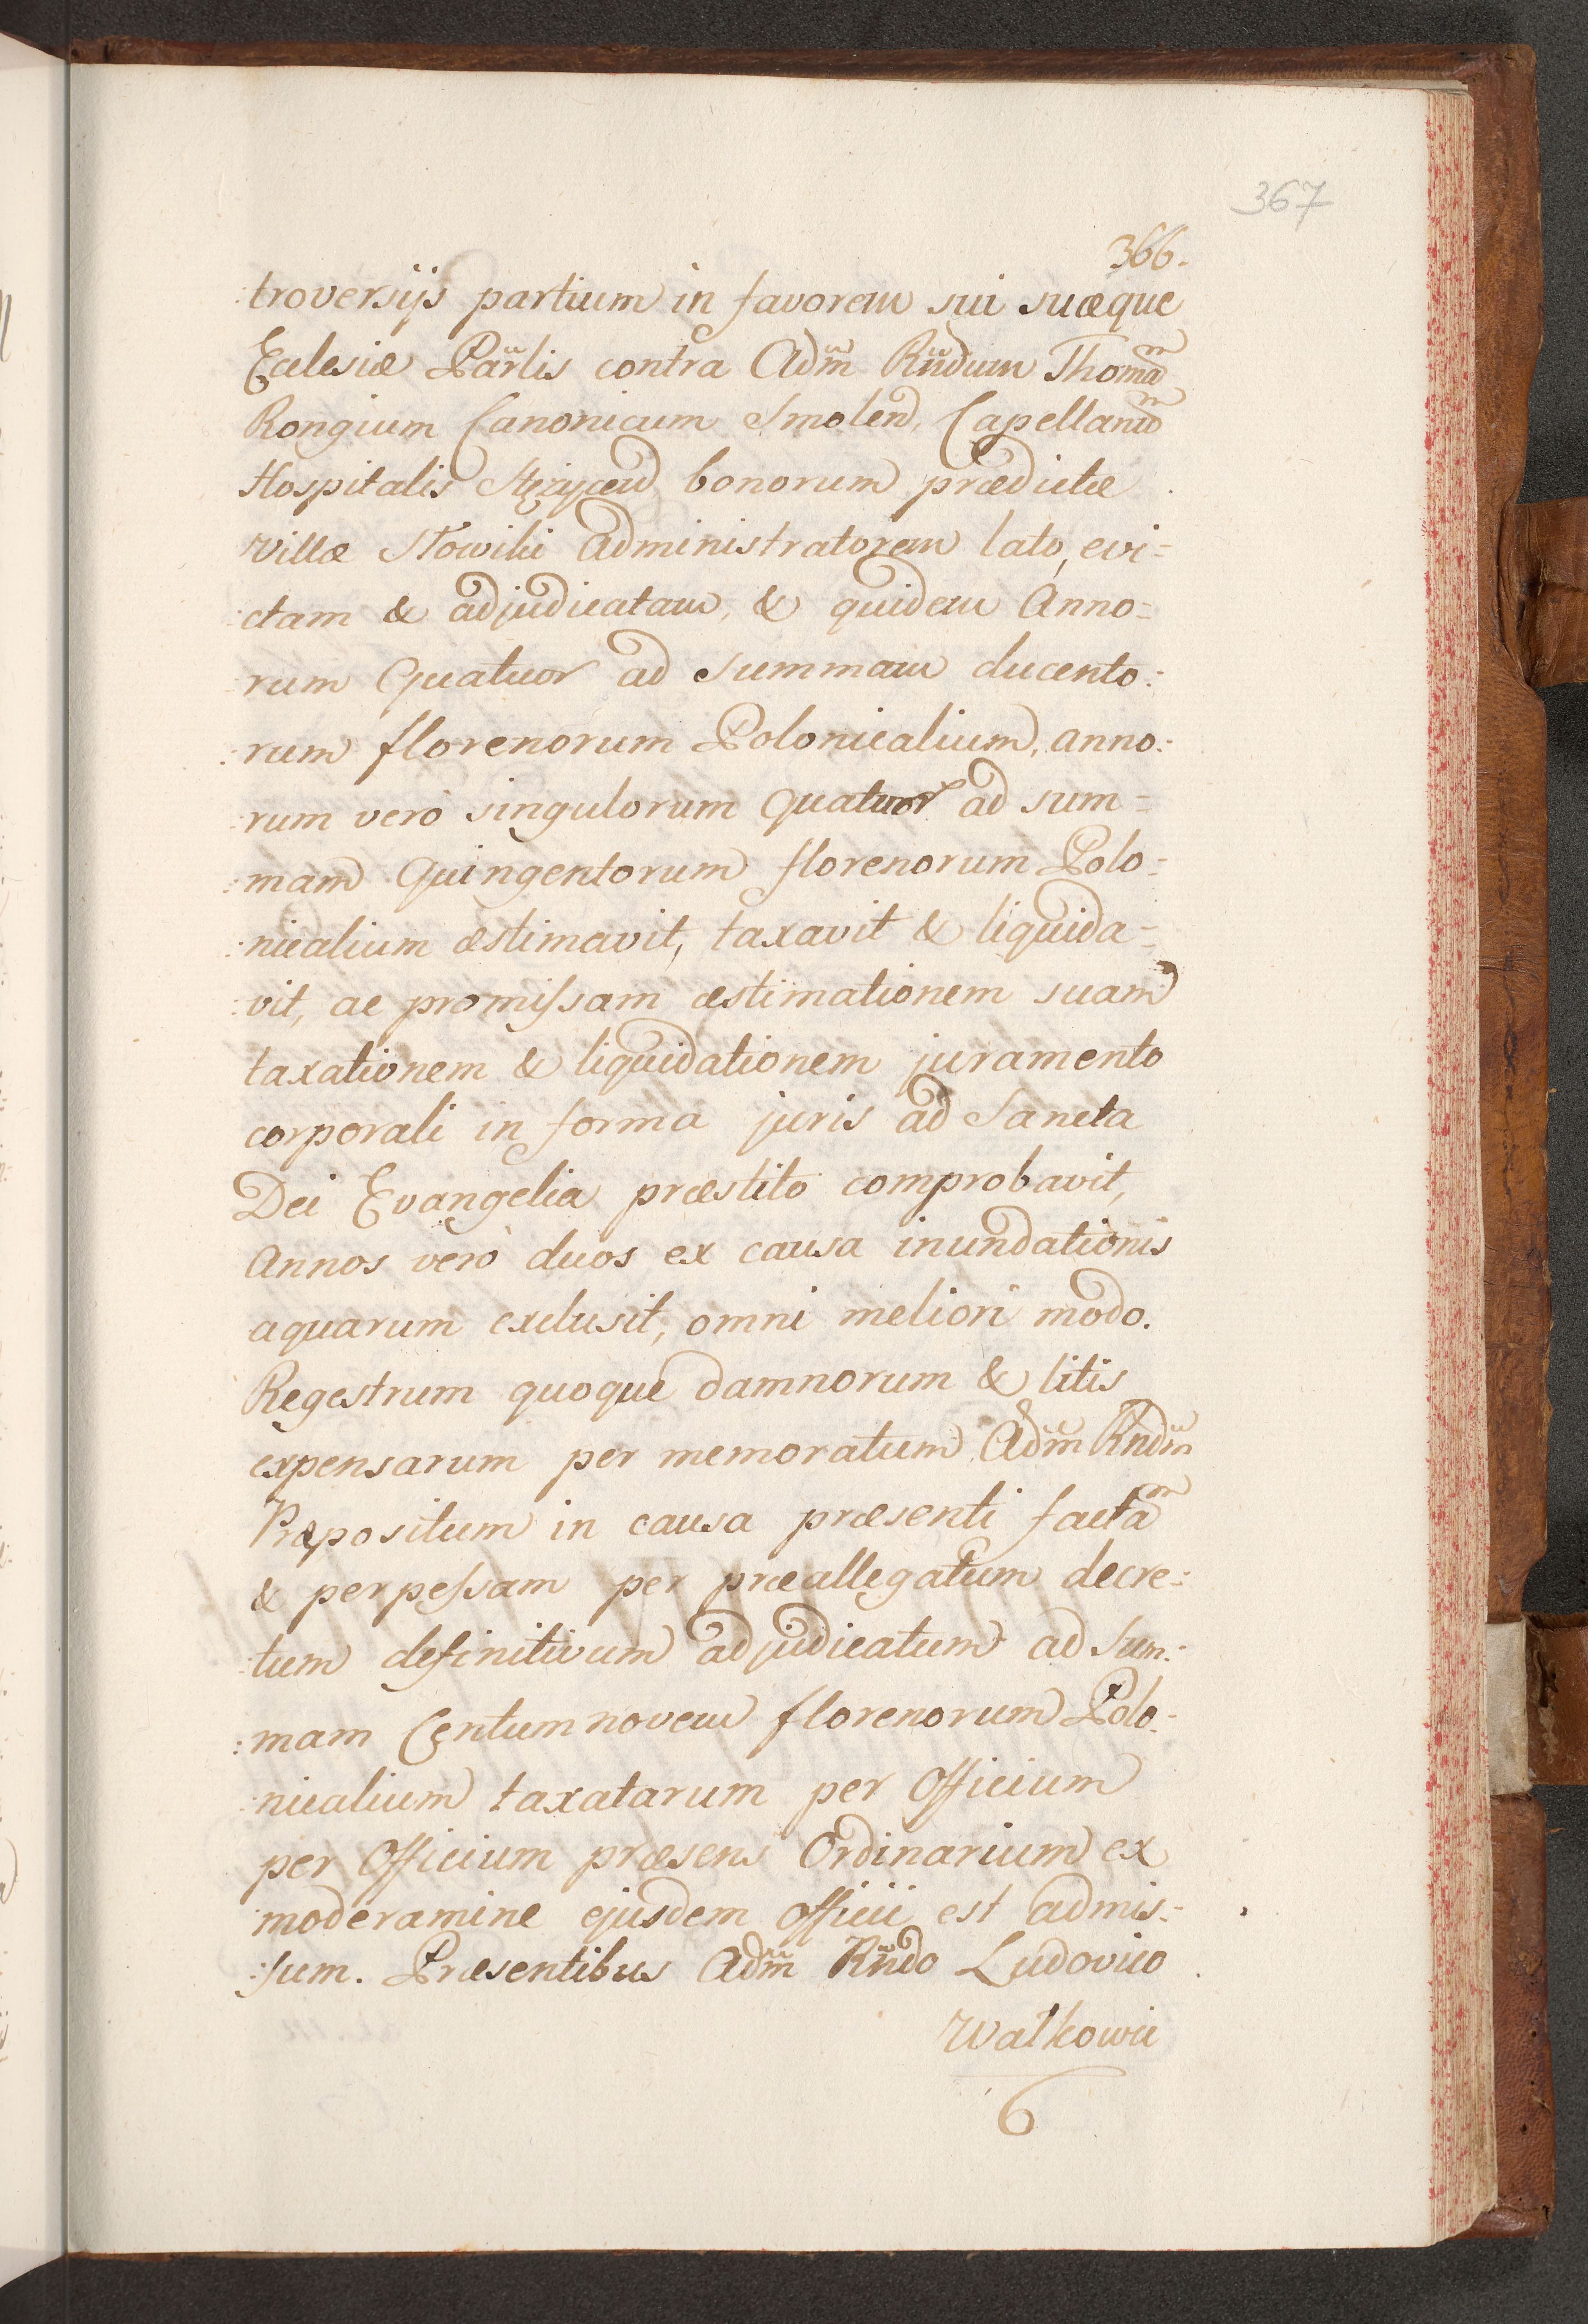 367
366.
:troversijs partium in favorem sui suæque
Ecclesiæ Parlis contra Adm Rndum Thomam
Rongium Canonicum Smolen, Capellanum
Hospitalis bonorum prædictæ
Villæ Nowiki Administratorem lato, evi=
:ctam & adjudicatam, & quidem Anno=
:rum Quatuor ad summam ducento:
:rum florenorum Polonicalium, anno:
:rum verò singulorum quatuor ad sum=
:mam Quingentorum florenorum Polo=
:nicalium æstimavit, taxavit & liquida=
:vit, ac promissam æstimationem suam
taxationem & liquidationem juramento
corporali in forma juris ad Sancta
Dei Evangelia præstito comprobavit,
Annos verò duos ex causa inundationis
aquarum exclusit, omni meliori modo.
Regestrum quoque damnorum & litis
expensarum per memoratum Adm Rndm
Præpositum in causa præsenti factam
& perpessam per præallegatum decre=
:tum definitivum adjudicatum ad Sum:
:mam Centum novem florenorum Polo=
:nicalium taxatarum per Officium
per Officium præsens Ordinarium ex
moderamine ejusdem officii est admis=
:sum. Præsentibus Adm Rndo Ludovico
Walkowic
6